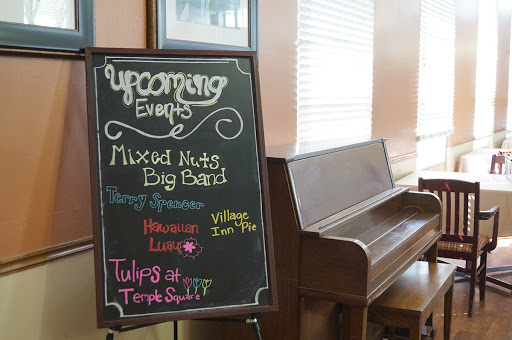 upcoming
Events
Mixed Nuts
Big Band
Terry Spencer
Hawaiian
Luau
Village
Inn Pie
Tulips at
Temple Square